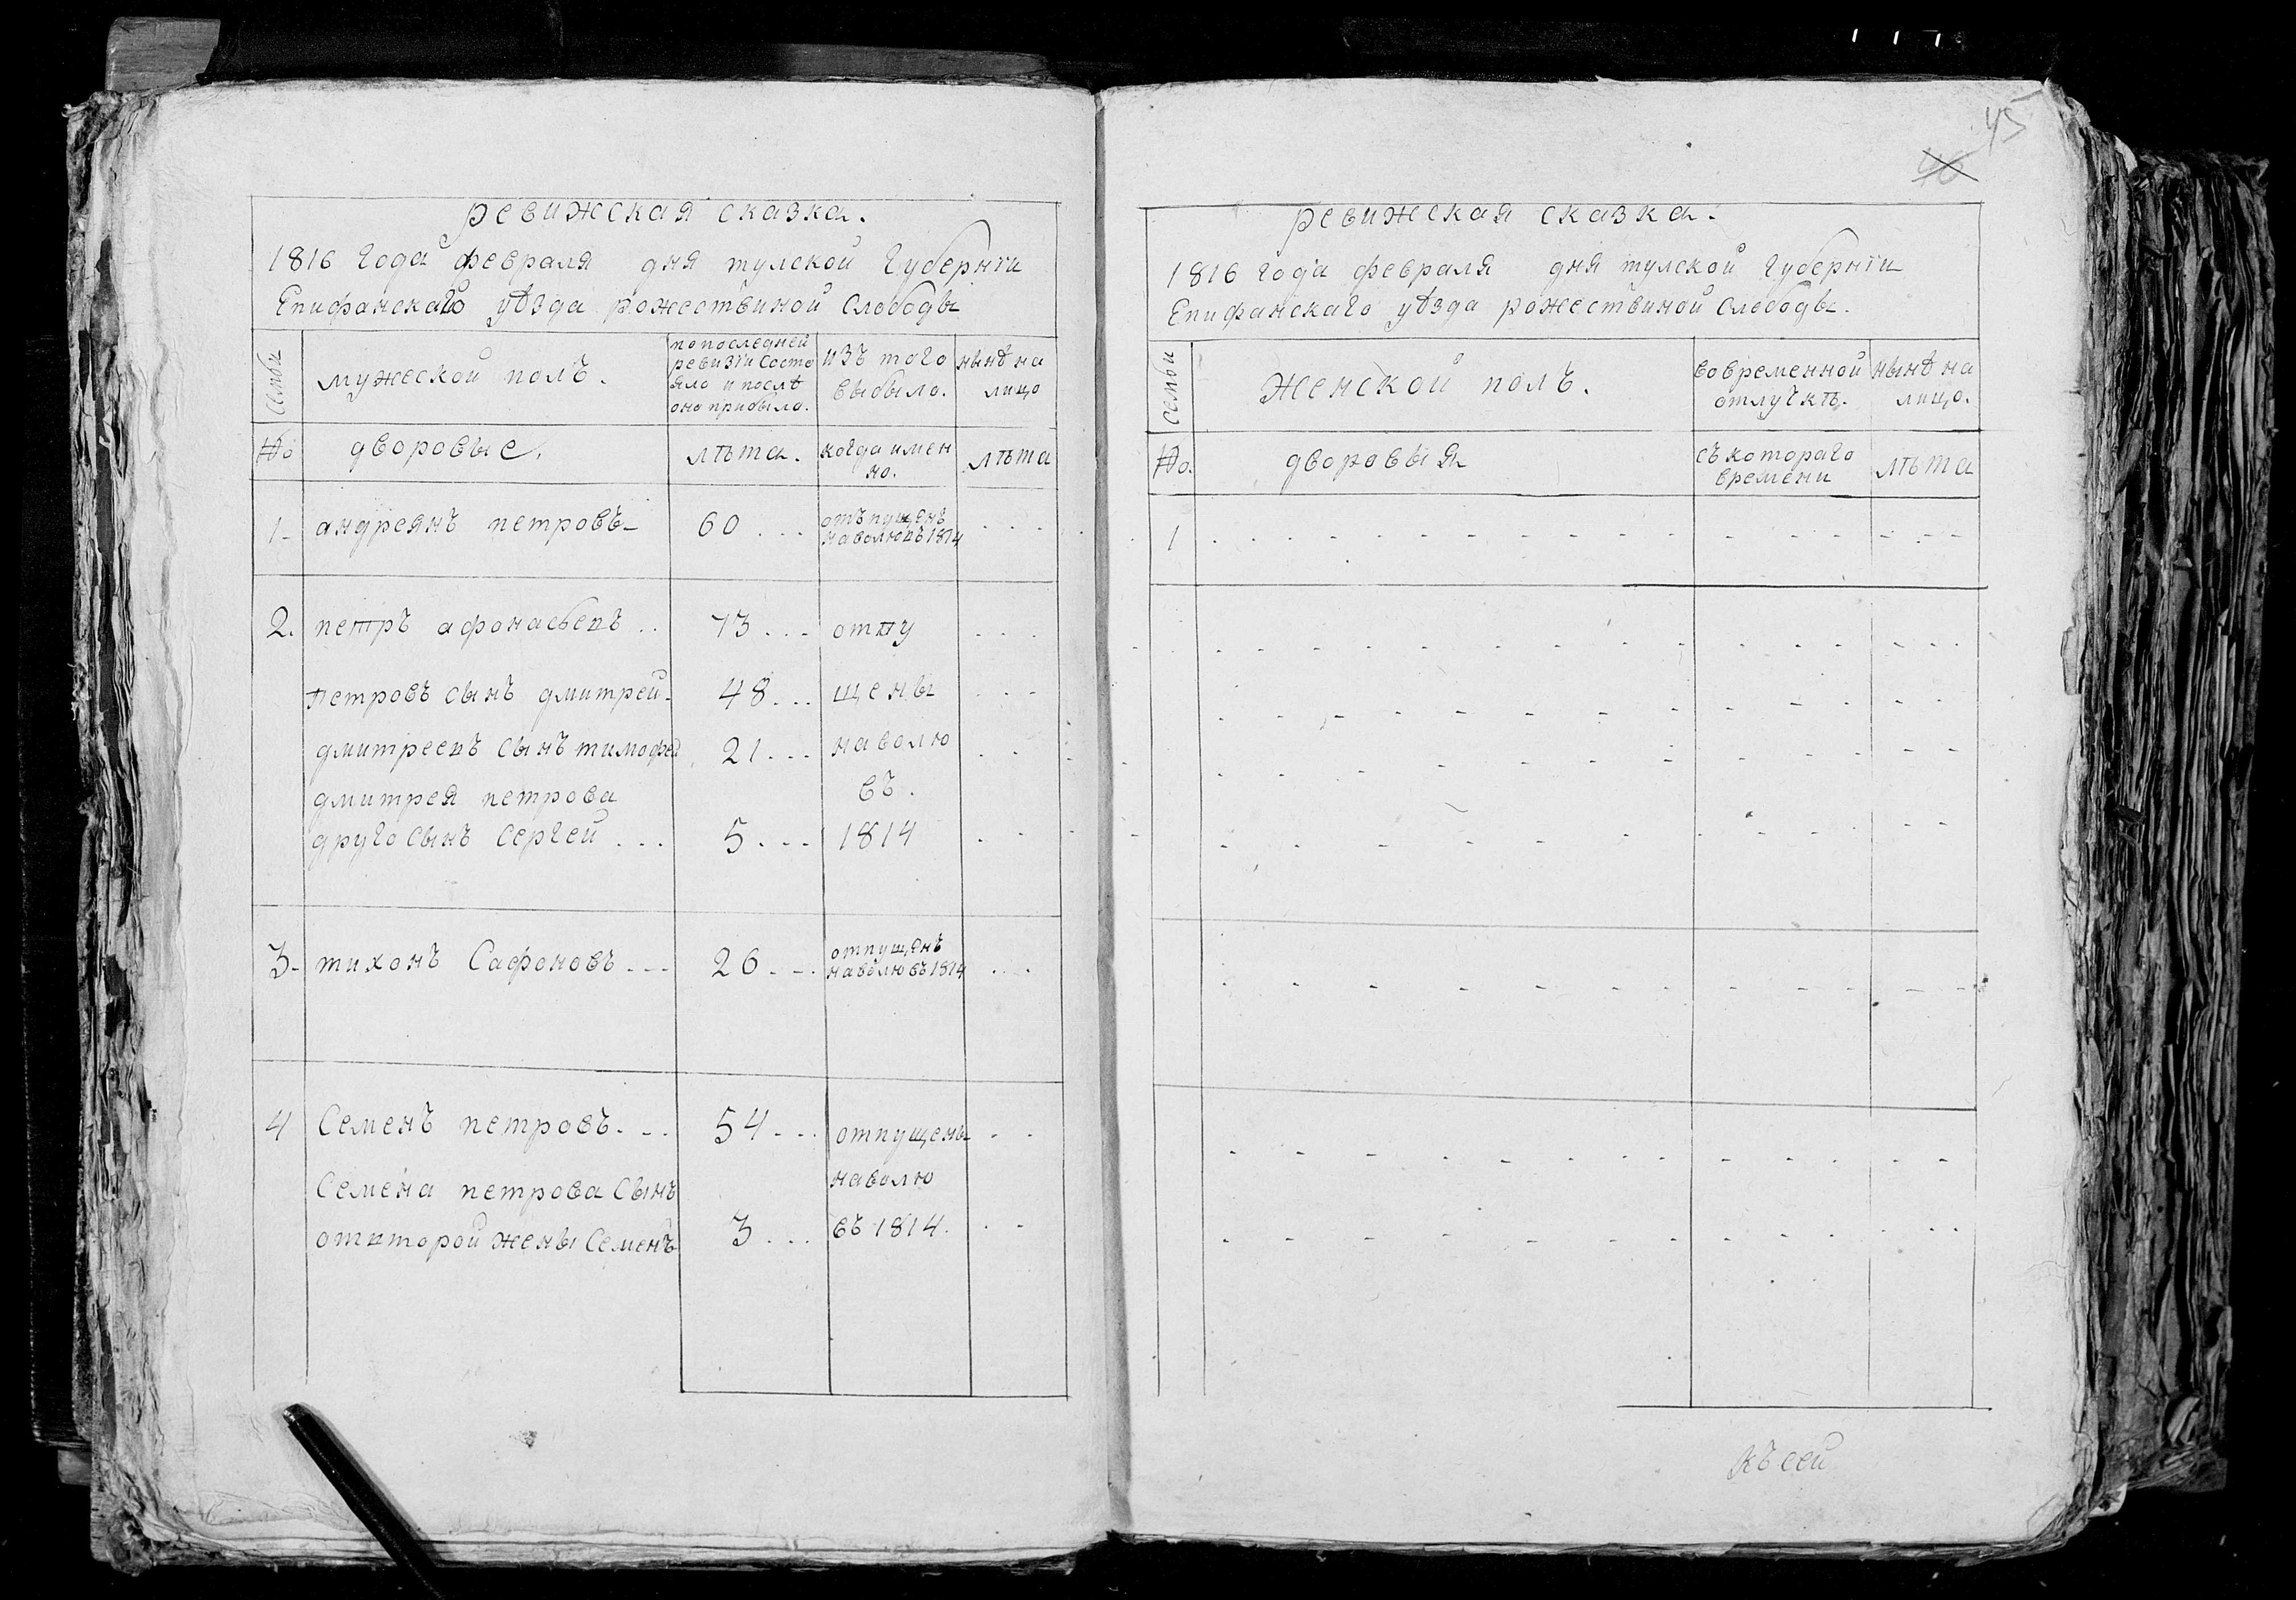 ревижская сказка.
1816 года февраля дня тулской губернiи
Епифанскаго уѣзда рожествиной слободы
семьи
мужеской полъ.
попоследней
ревизiи состо
яло и послѣ
оно прибыло.
изъ того
выбыло.
нынѣ на
лицо
№
дворовые.
лѣта.
когда имен
но.
лѣта
1 андреянъ петровъ 60 отъпущенъ
наволювъ 1814
2. петръ афонасьевъ 73 отпу
петровъ сынъ дмитрей 48 щены
дмитреевъ сынъ тимофей 21 наволю
дмитрея петрова въ.
друго сынъ сергей 5 1814
3 тихонъ Сафоновъ 26 отпущенъ
наволювъ 1814
4 Семенъ петровъ 54 отпущены
Семена петрова сынъ наволю
отвторой жены Семенъ 3 въ 1814.
45
46
ревижская сказка.
1816 года февраля дня тулской губернiи
Епифанскаго уѣзда рожествиной слободы.
семьи
женской полъ.
вовременной
отлучкѣ.
нынѣ на
лицо.
№.
дворовыя
съ котораго
времени
лѣта
1
къ сей